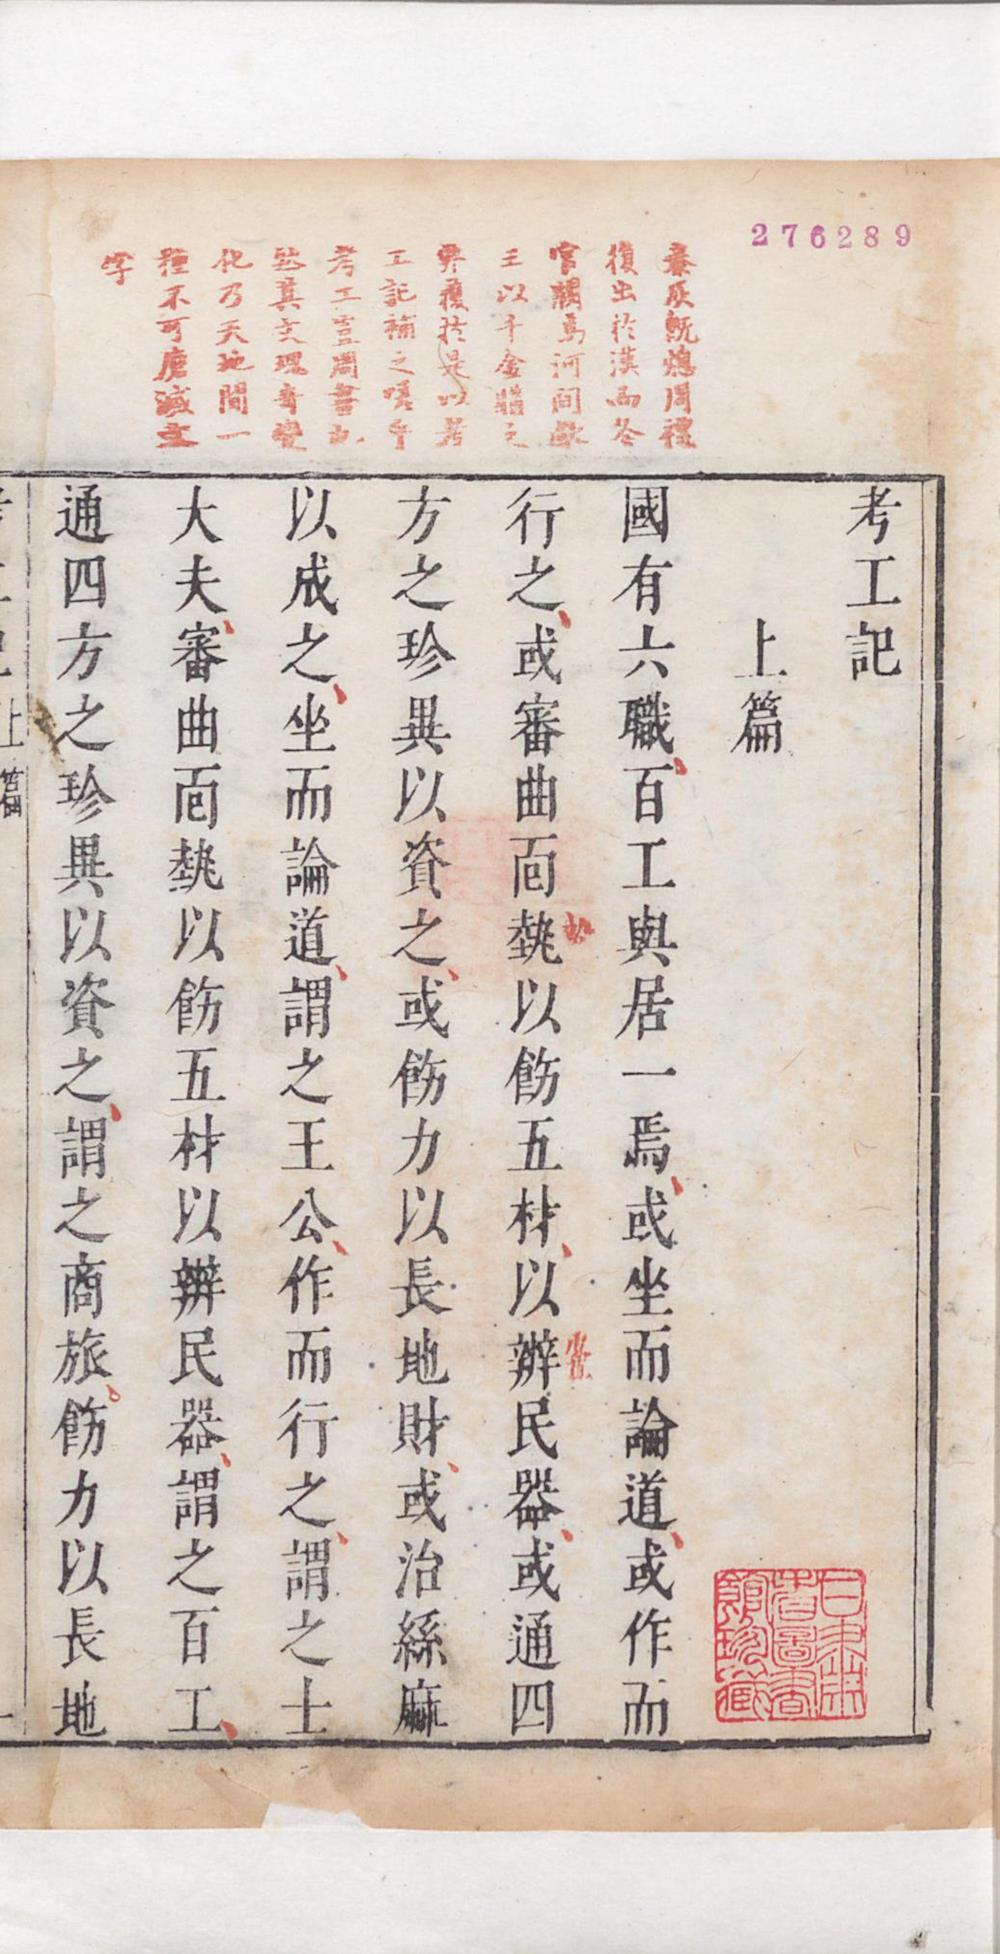 276289
秦灰既熄周禮
復出於漢而冬
官闕焉河間獻
王以千金購之
弗獲於是以考
工記補之嗟乎
考工豈周書也
然其文瑰奇變
化乃天地間一
種不可磨滅文
字
考工記
上篇
國有六職百工與居一焉或坐而論道或作而
行之或審曲面埶以飭五材以辨民器或通四
方之珍異以資之或飭力以長地財或治絲麻
以成之坐而論道謂之王公作而行之謂之士
大夫審曲面埶以飭五材以辨民器謂之百工
通四方之珍異以資之謂之商旅飭力以長地